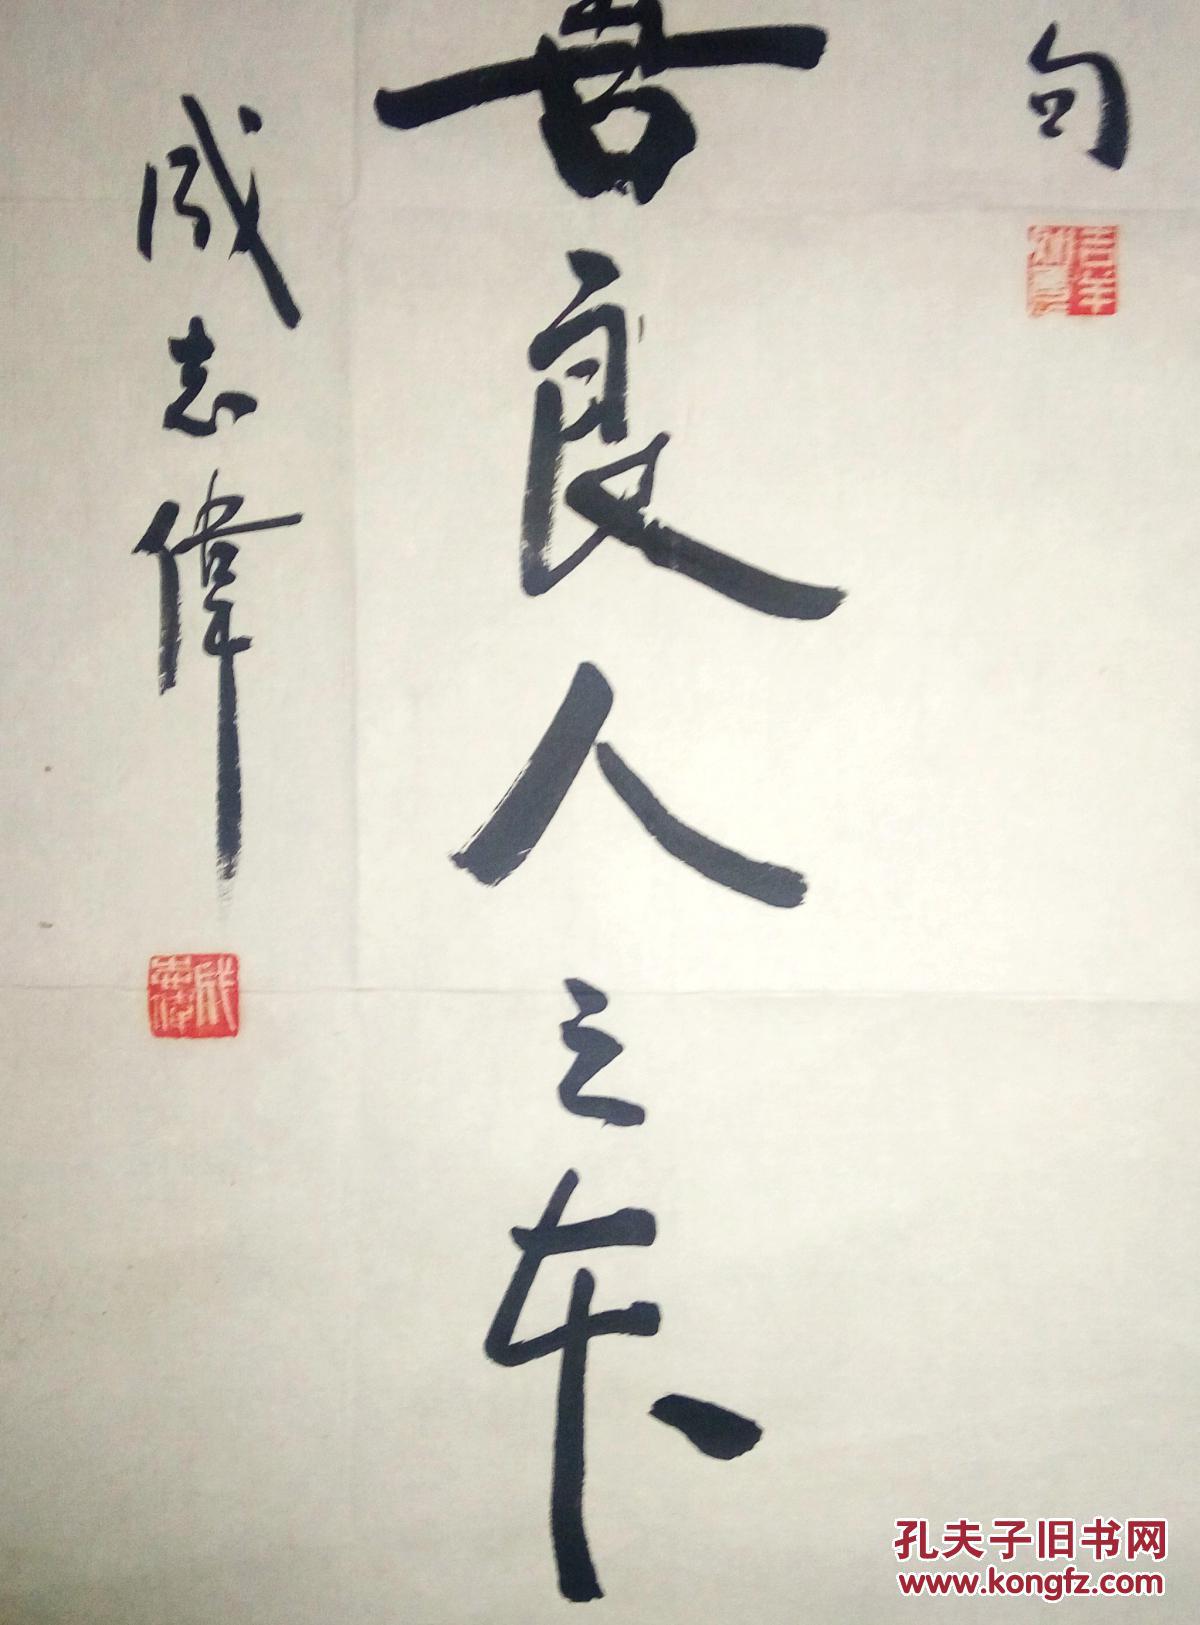 句
善良人之本
成志偉
孔夫子旧书网
www.kongfz.com